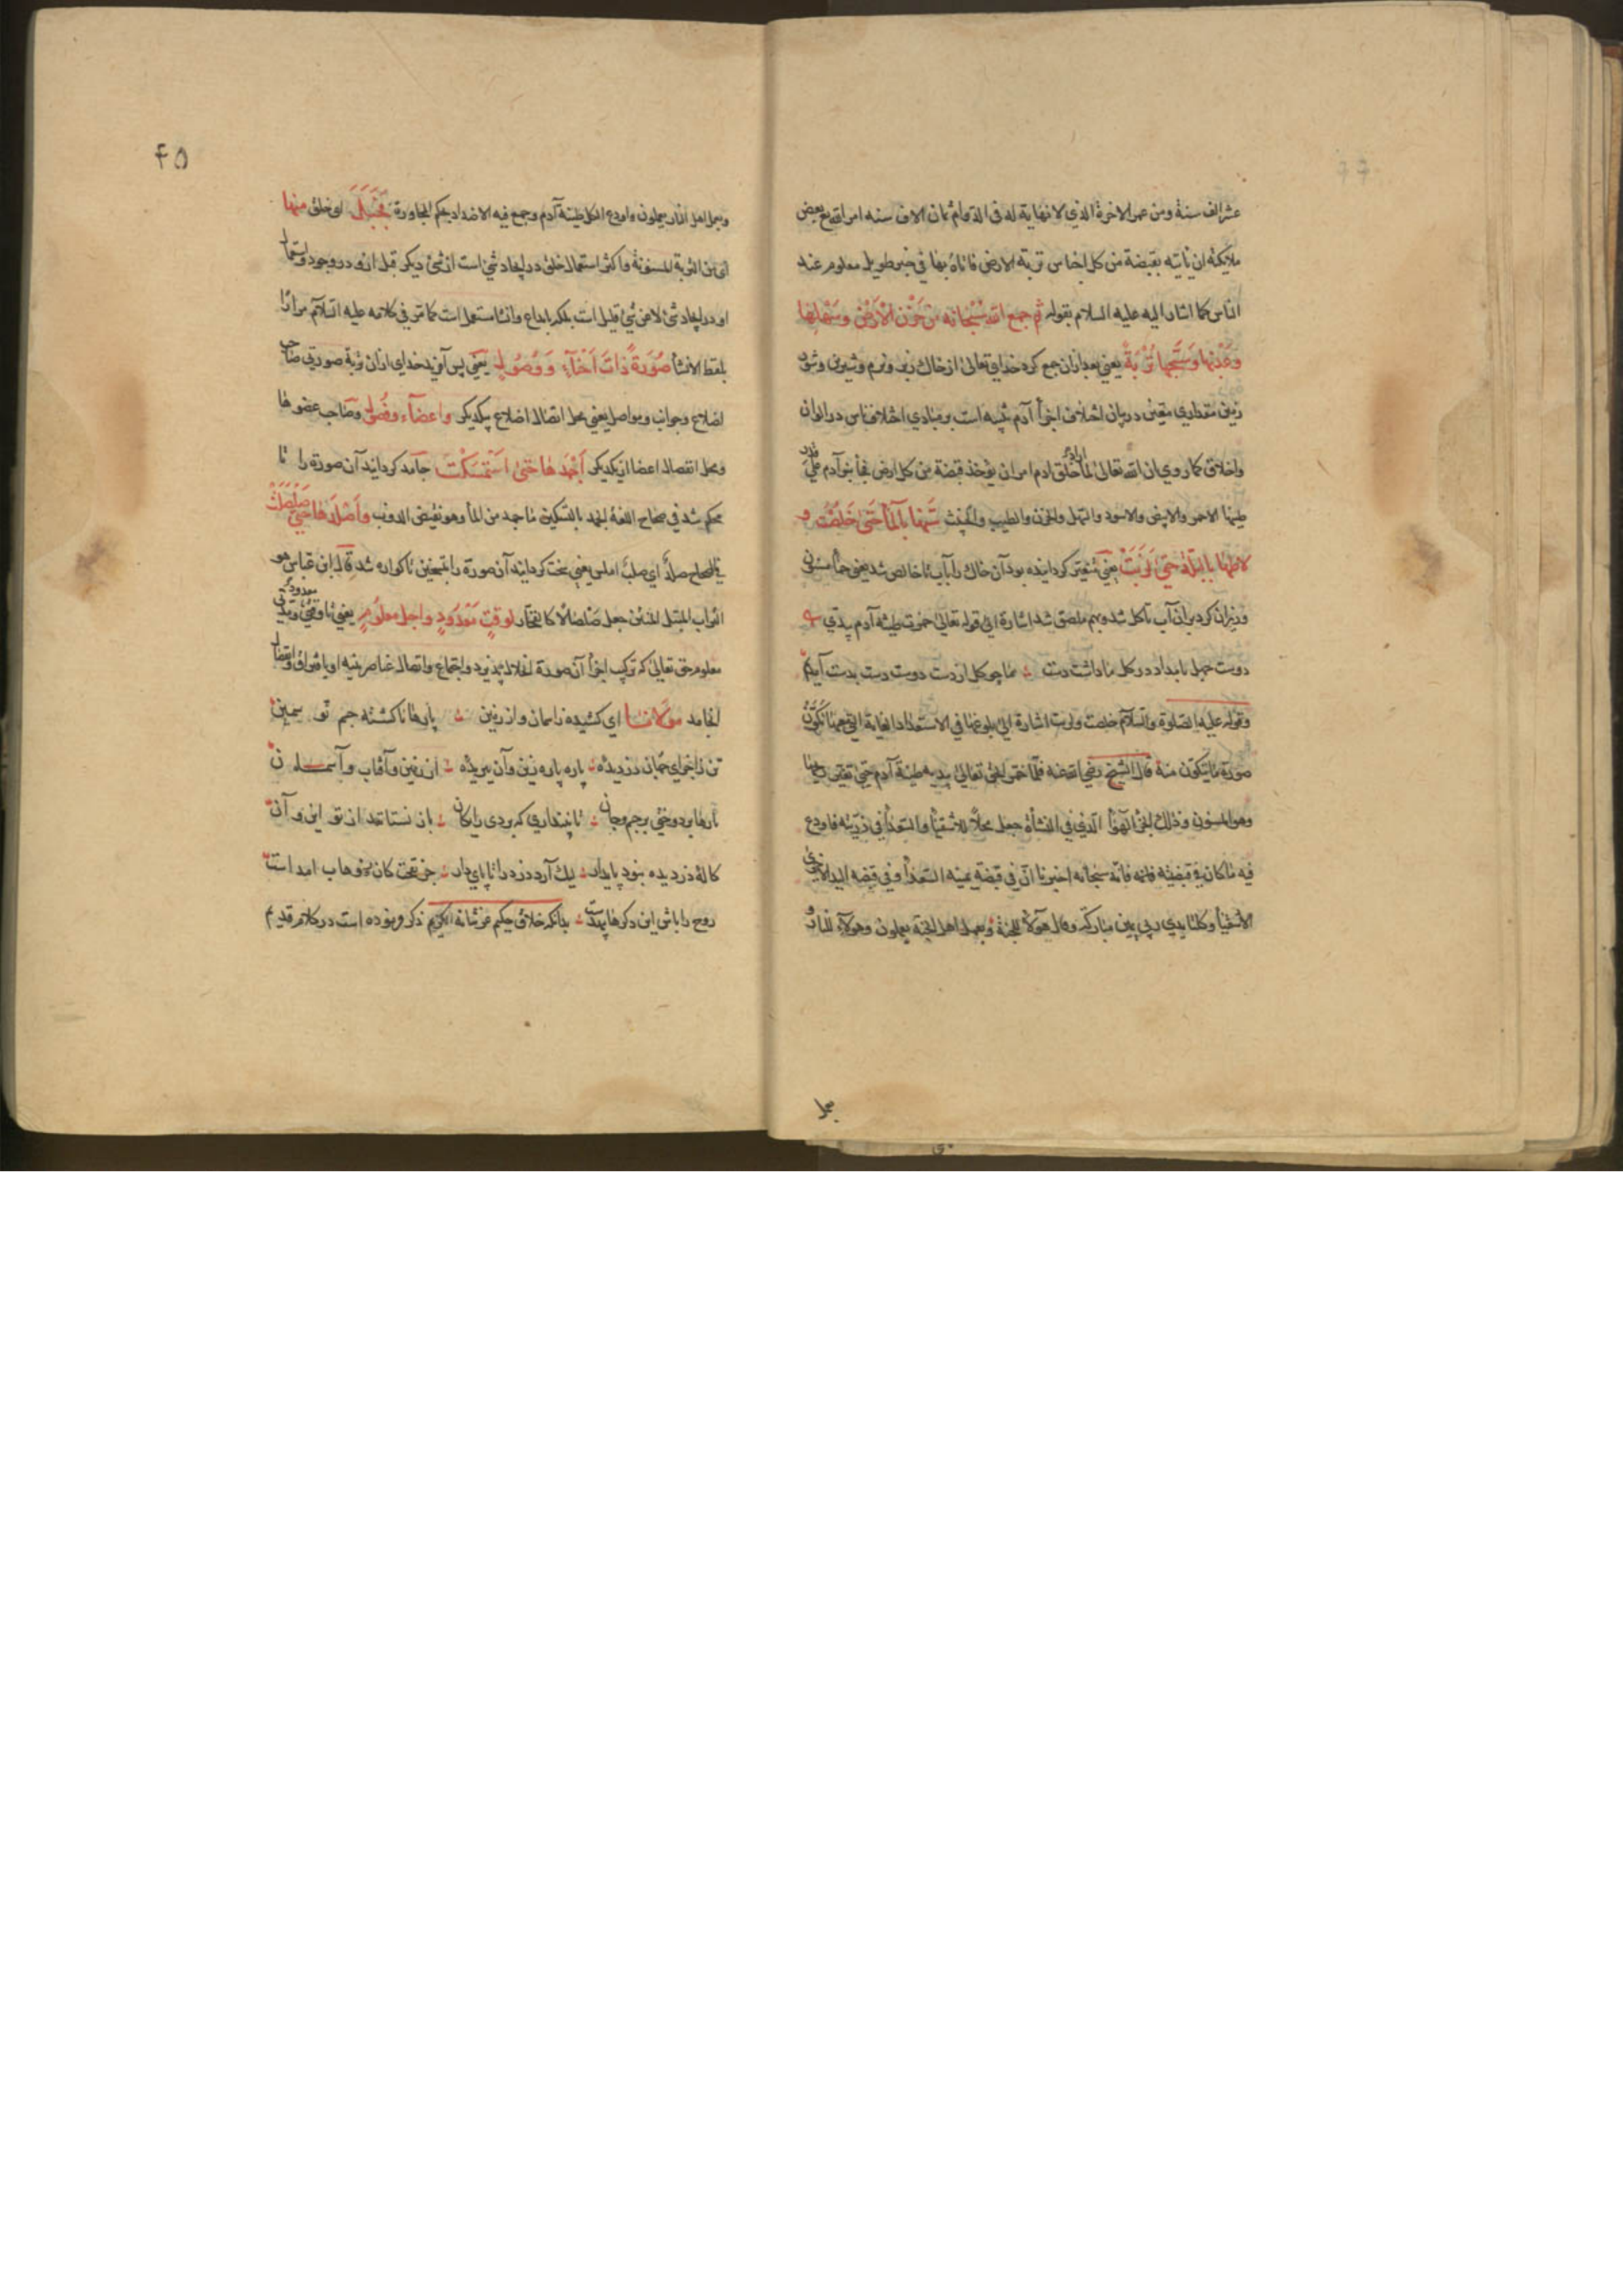 عشر الف سنة ومن عمر الاخرة الذي لا نهاية له فى الدوام ثمان الاف سنه امر الله بعض
ملايكته ان ياتيه بقبضة من كل اجناس تربه الارض فاتاه بها في خبر طويل معلوم عند
الناس كما اشار اليه عليه السلام بقوله ثم جمع الله سبحانه من حزن الارض وسهلها
وعذبها وسبخها تربة يعني بعد از ان جمع كرد خداي تعالى از خاك زبر ونرم وشيرين وشور
زمين مقداري معين در بيان اختلاف اجزا آدم تنبيه است بر مبادي اختلاف ناس در الوان
واخلاق كما روي ان الله تعالى لما اراد خلق ادم امر ان يؤخذ قبضة من كل ارض فجأ بنو آدم على قدر
طينها الاحمر والابيض والاسود والسهل والحزن والطيب والخبيث سنها بالمأ حتى خلصت و
لاطها بالبلة حتى لزبت يعني متغير كردانيده بود آن خاك را بآب تا خالص شد يعني حمأ مسنون
ودوزان كرد بر ان آب تا كل شد وبهم ملصق شد اشارة الى قوله تعالى خمرت طينة آدم بيدي
دوست چهل بامداد در كل ما داشت دست ما چو كل از دست دوست دست بدست آيديم
وقوله عليه الصلوة والسلام خلصت ولزبت اشارة الى بلوغها في الاستعداد الغاية التي معها تكون
صورة ما يتكون منه قال الشيخ رضي الله عنه فلما خمر الحق تعالى بيديه طينة آدم حتى تغير ريحها
وهو المسنون وذلك الجزء الهوأ الذي في النشأة جعل محلا للاشقيأ والسعدأ في ذريته فاودع
فيه ما كان في قبضتيه فانه سبحانه اخبرنا ان في قبضة يمينه السعدأ وفي قبضه اليد الاخرى
الاشقيأ وكلتا يدي ربي يمين مباركة وقال هولاء للجنة وبعمل اهل الجنة يعملون وهولاء للنار و
بعمل
٤٥
وبعمل اهل النار يعملون واودع الكل طينة آدم وجمع فيه الاضداد بحكم المجاورة فجبل اى خلق منها
اى من التربة المسنونة واكثر استعمال خلق در ايجاد شئ است از شئ ديكر قبل ازو در وجود واستعمال
او در ايجاد شئ لا من شئ قليل است بلكه ابداع وانشا مستعمل است كما مر في كلامه عليه السلام مرارا
بلفظ الانشأ صورة ذات احناء ووصول يعني پس آفريد خداي از ان تربة صورتي صاحب
اضلاع وجوانب ومواصل يعني محل اتصال اضلاع بيكديكر واعضاء وفصول وصاحب عضوها
ومحل انفصال اعضا از يكديكر اجمدها حتى استمسكت جامد كردانيد آن صورة را تا
محكم شد في صحاح اللغة الجمد بالتسكين ما جمد من المأ وهو نقيض الذوب واصلدها حتى صلصلت
في الصحاح صلد اي صلب املس يعني سخت كردانيد آن صورة را تا كواره شد قال ابن عباس هو
التراب المبتل المنتن جعل صلصالا كالفخار لوقت معدود واجل معلوم يعني تا وقتي معدود ومدتي
معلوم حق تعالى كه تركيب اجزأ آن صورة انحلال پذيرد واجتماع واتصال عناصر بنيه او بافتراق وانفصال
انجامد مولانا اي كشيده ز اسمان واز زمين پارها تا كشته جسم تو سمين
تن ز اجزاي جهان دزديده پاره پاره زين وآن ببريده از زمين وآفاب وآسمان
پارها بر دوختي بر جسم وجان تا پنداري كه بردي رايكان باز نستانند از تو اين وآن
كالهٔ دزديده نبود پايدار ليك آرد دزد را تا پاي دار جز نفخت كان ز وهاب امد است
روح را باش اين دكرها بيهدست بدانكه خلاق حكيم عز شانه الكريم ذكر فرموده است در كلام قديم